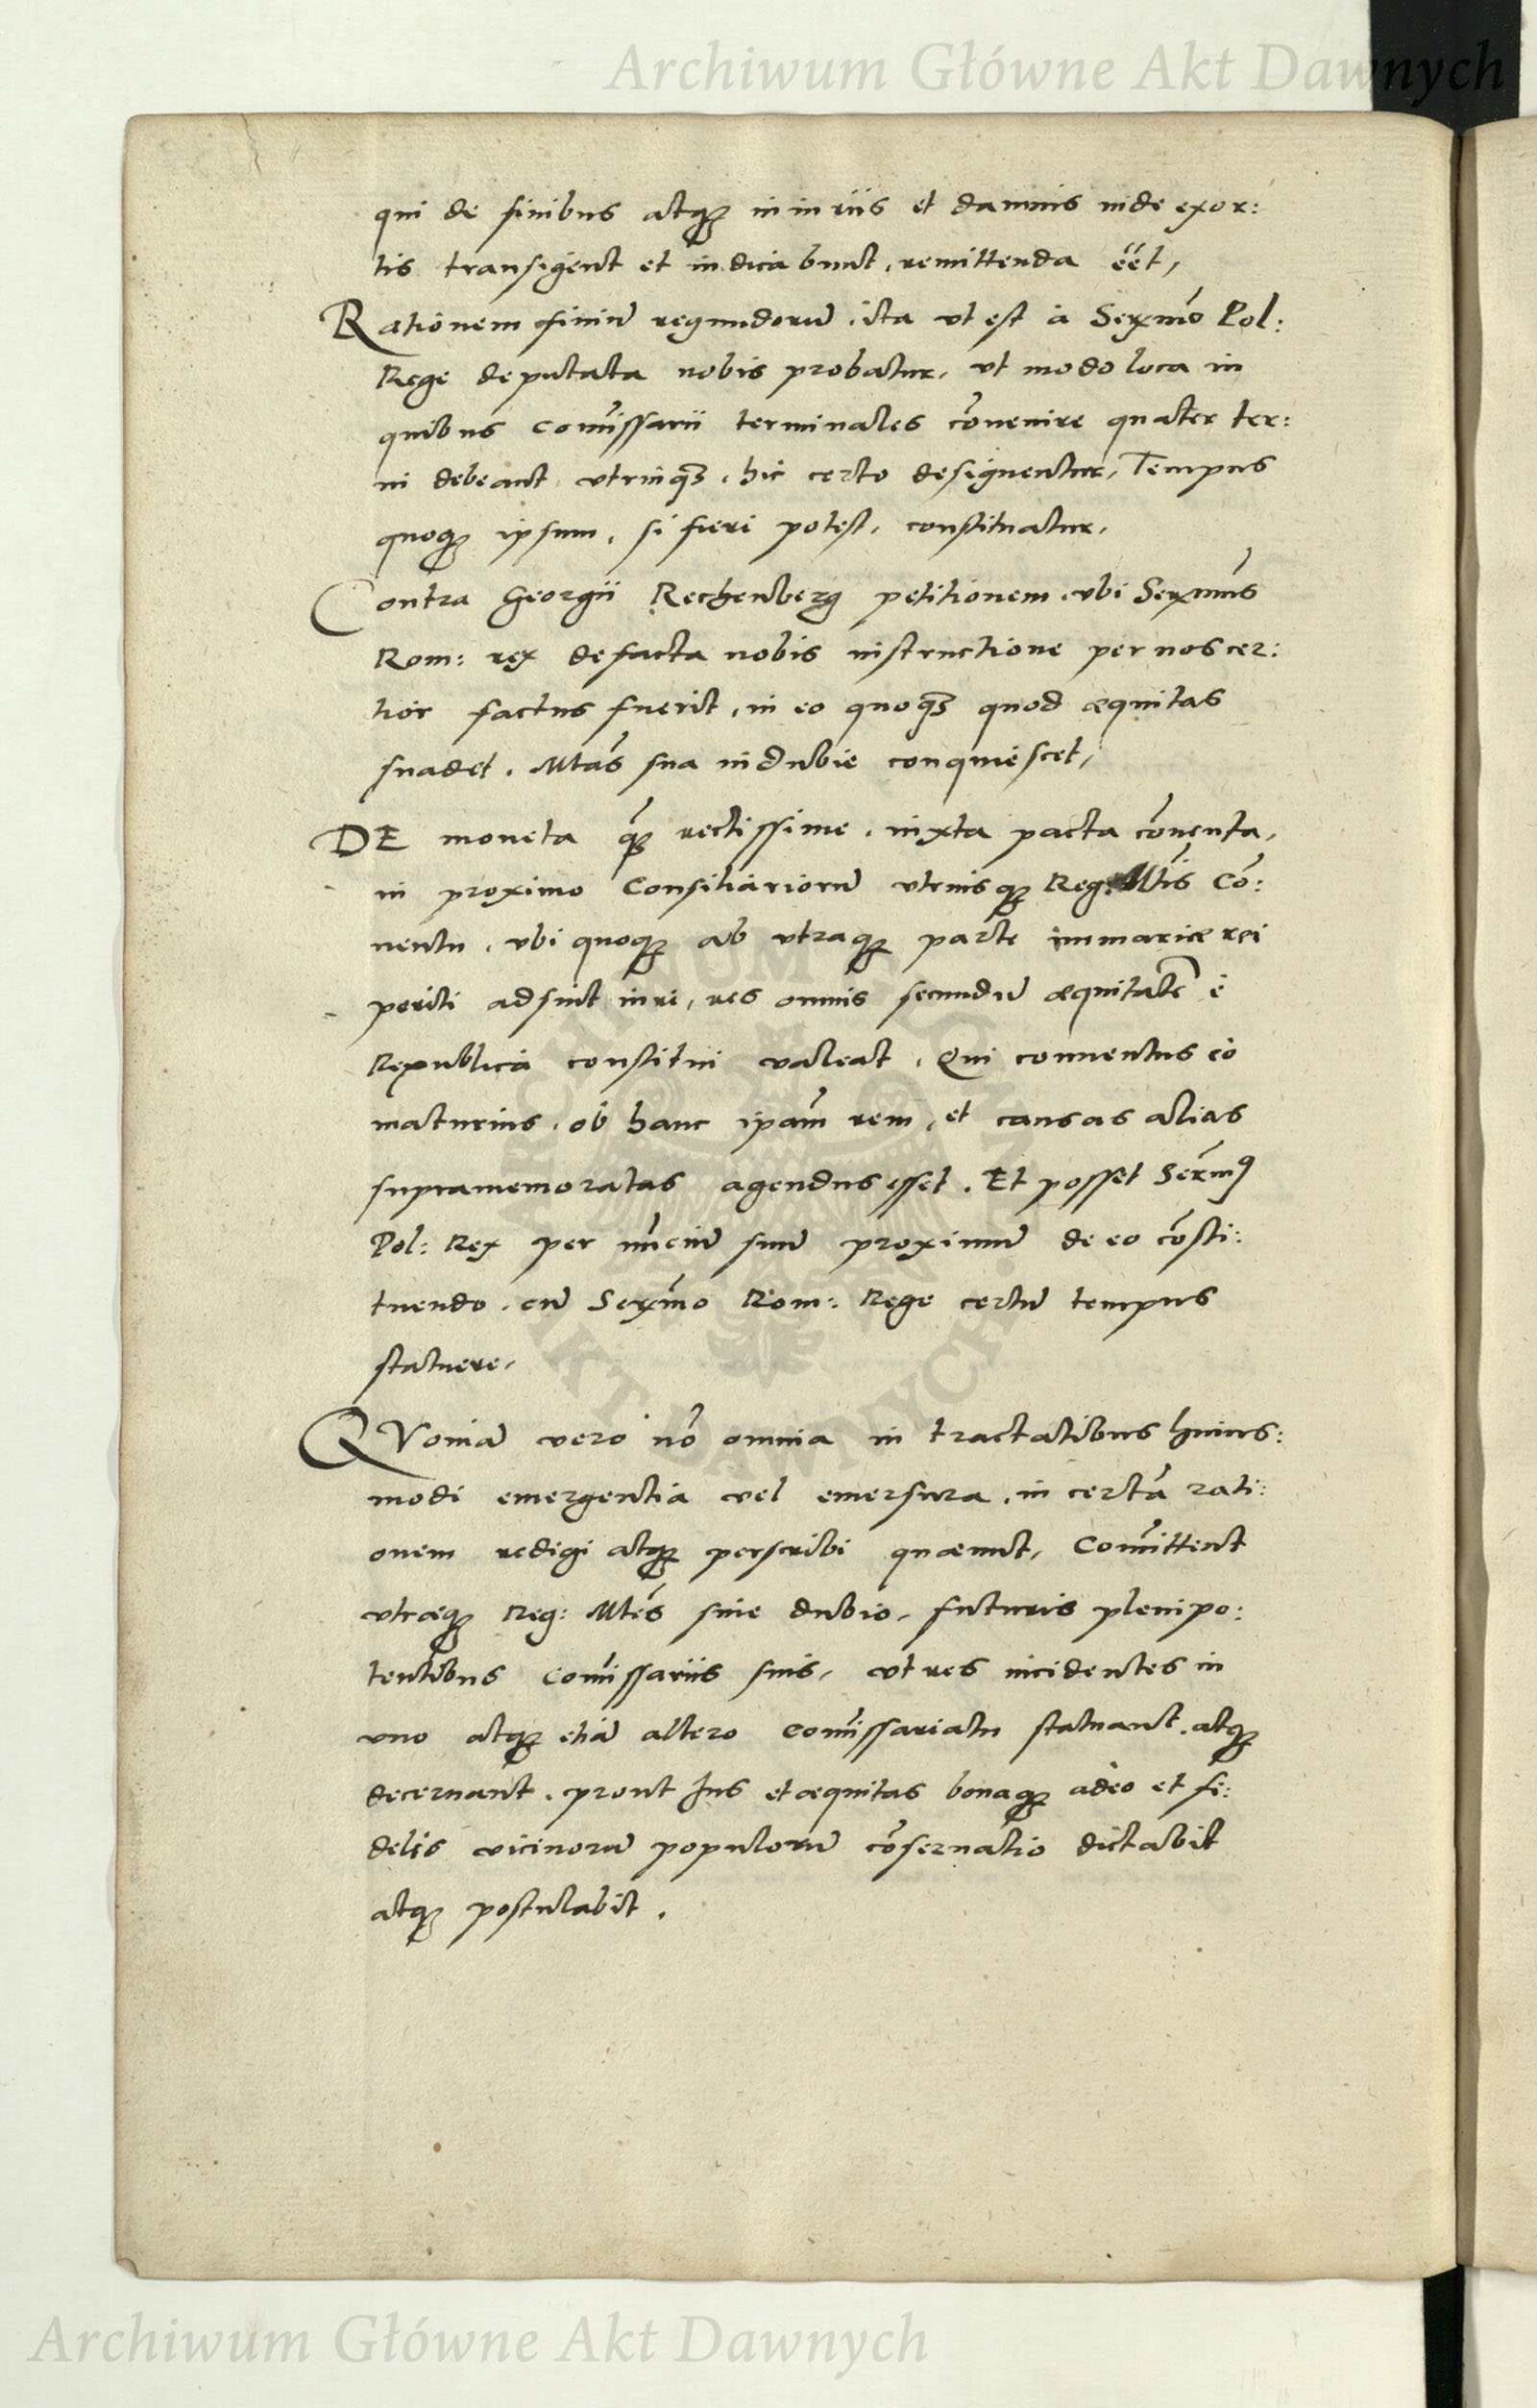 Archiwum Główne Akt Dawnych
qui de finibus atq₃ iniuriis et damnis inde exor:
tis transigent et iudicabunt, remittenda eēt,
Rationem finiū regundorū, ita ut est à Serx̄mo Pol:
Rege deputata nobis probatur, ut modo loca in
quibus Com̄issarii terminales cōvenire quater ter:
ni debeant utrinq₃, hic certo designentur, Tempus
quoq₃ ipsum, si fieri potest, constituatur,
Contra Georgii Rechenberg petitionem, ubi Serx̄mus
Rom: rex de facta nobis instructione per nos cer:
tior factus fuerit, in eo quoq₃ quod æquitas
suadet, Mtas̄ sua indubie conquiescet,
DE moneta q̄₃ rectissime, iuxta pacta cōventa,
in proximo Consiliariorū utriusq₃ Reg: Mtis̄ Cō:
ventu, ubi quoq₃ ab utraq₃ parte rei
periti adsint, res omnis secundū æquitatē è
Republica constitui valeat, Qui conventus eò
maturius, ob hanc ipam̄ rem, et causas alias
supramemoratas agendus esset. Et posset Serm̄9
Pol: Rex per nūciū suū proximū de eo cōsti:
tuendo, cū Serx̄mo Rom: Rege certū tempus
statuere,
QVoniā vero nō omnia in tractatibus huius:
modi emergentia vel emersura, in certā rati:
onem redigi atq₃ perscribi quæunt, Com̄ittent
utræq₃ Reg: Mtes̄ sine dubio, futuris plenipo:
tentibus Com̄issariis suis, ut res incidentes in
uno atq₃ etiā altero Com̄issariatu statuant, atq₃
decernant, prout Ius et æquitas bonaq₃ adeo et fi:
delis vicinorū populorū cōservatio dictabit
atq₃ postulabit.
Archiwum Główne Akt Dawnych